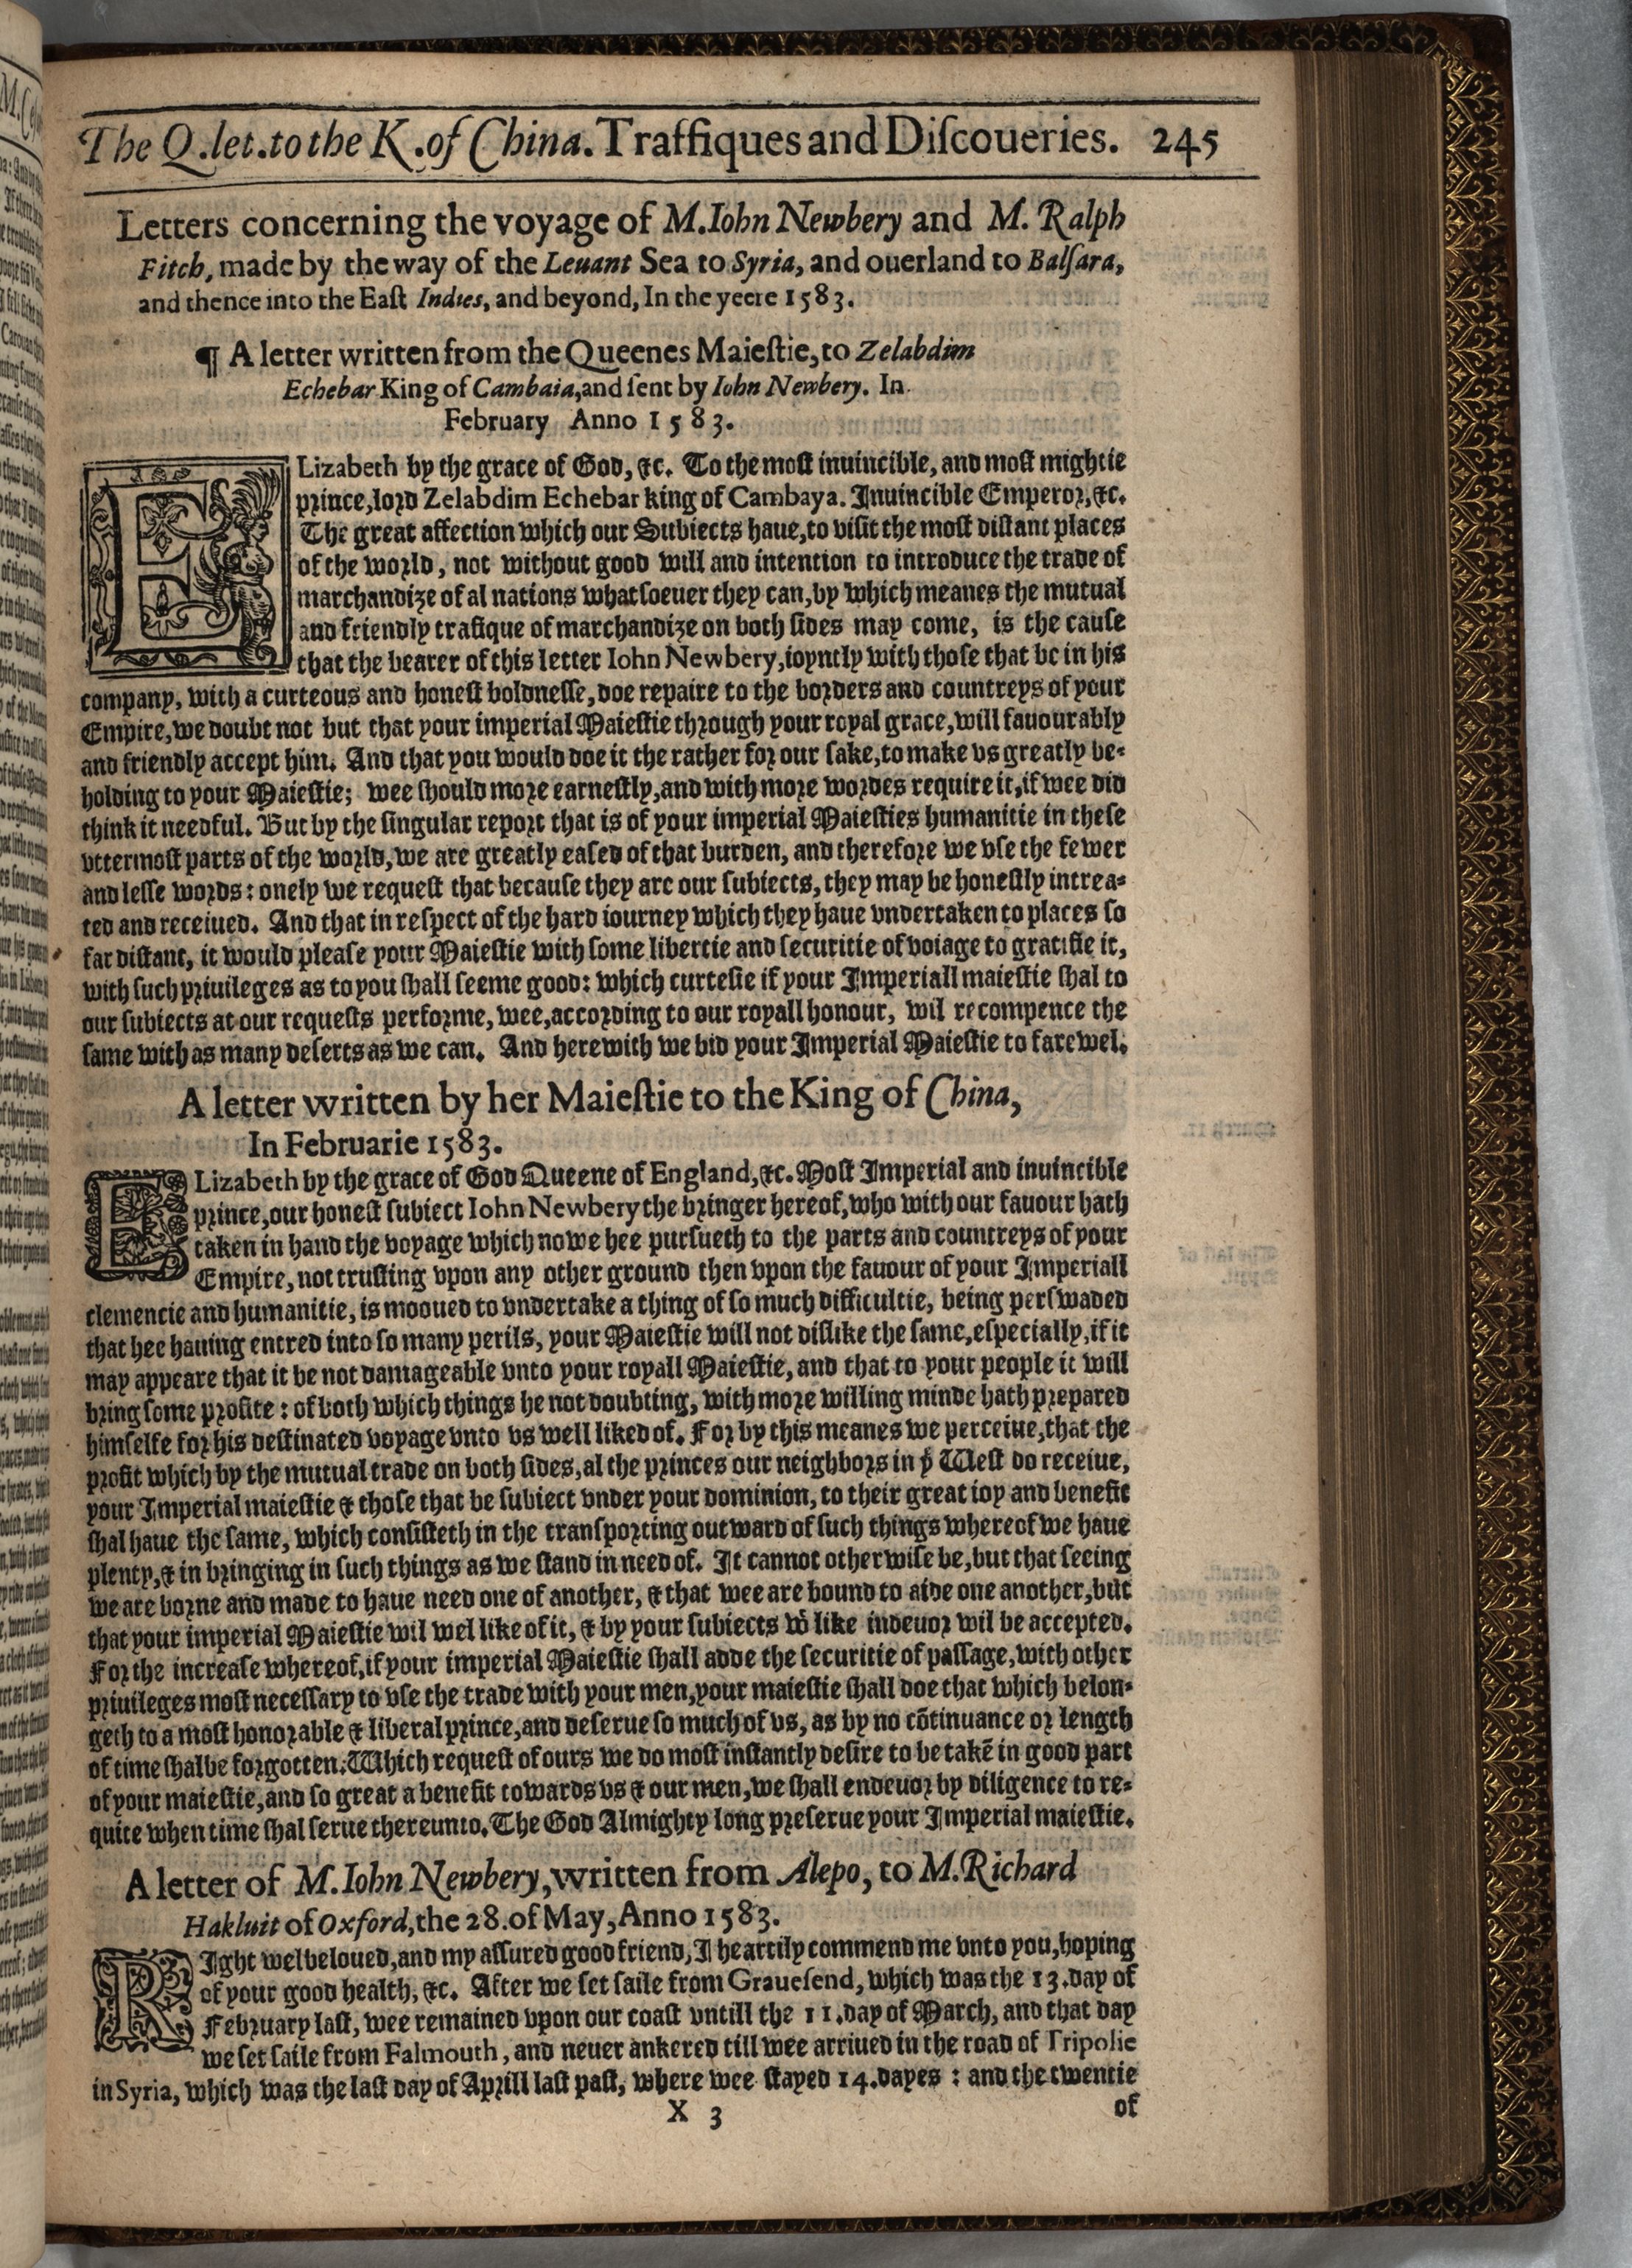 The Q.let.to the K.of China. Traffiques and Diſcoueries. 245
Letters concerning the voyage of M.Iohn Newbery and M. Ralph
Fitch, made by the way of the Leuant Sea to Syria, and ouerland to Balſara,
and thence into the Eaſt Indies, and beyond, In the yeere 1583.
¶ A letter written from the Queenes Maieſtie, to Zelabdim
Echebar King of Cambaia,and ſent by Iohn Newbery. In
February Anno 1583.
ELizabeth by the grace of God, &c. To the moſt inuincible, and moſt mightie
prince,lord Zelabdim Echebar king of Cambaya. Inuincible Emperor,&c.
The great affection which our Subiects haue,to viſit the moſt diſtant places
of the world, not without good will and intention to introduce the trade of
marchandize of al nations whatſoeuer they can,by which meanes the mutual
and friendly trafique of marchandize on both ſides may come, is the cauſe
that the bearer of this letter Iohn Newbery,ioyntly with thoſe that be in his
company, with a curteous and honeſt boldneſſe,doe repaire to the borders and countreys of your
Empire,we doubt not but that your imperial Maieſtie through your royal grace,will fauourably
and friendly accept him. And that you would doe it the rather for our ſake,to make vs greatly be-
holding to your Maieſtie; wee ſhould more earneſtly,and with more wordes require it,if wee did
think it needful. But by the ſingular report that is of your imperial Maieſties humanitie in theſe
vttermoſt parts of the world,we are greatly eaſed of that burden, and therefore we vſe the fewer
and leſſe words: onely we requeſt that becauſe they are our ſubiects, they may be honeſtly intrea-
ted and receiued. And that in reſpect of the hard iourney which they haue vndertaken to places ſo
far diſtant, it would pleaſe your Maieſtie with ſome libertie and ſecuritie of voiage to gratifie it,
with ſuch priuileges as to you ſhall ſeeme good: which curteſie if your Imperiall maieſtie ſhal to
our ſubiects at our requeſts performe, wee,according to our royall honour, wil recompence the
ſame with as many deſerts as we can. And herewith we bid your Imperial Maieſtie to farewel.
A letter written by her Maieſtie to the King of China,
In Februarie 1583.
ELizabeth by the grace of God Queene of England,&c. Moſt Imperial and inuincible
prince,our honeſt ſubiect Iohn Newbery the bringer hereof,who with our fauour hath
taken in hand the voyage which nowe hee purſueth to the parts and countreys of your
Empire, not truſting vpon any other ground then vpon the fauour of your Imperiall
clemencie and humanitie, is mooued to vndertake a thing of ſo much difficultie, being perſwaded
that hee hauing entred into ſo many perils, your Maieſtie will not diſlike the ſame,eſpecially,if it
may appeare that it be not damageable vnto your royall Maieſtie, and that to your people it will
bring ſome profite : of both which things he not doubting, with more willing minde hath prepared
himſelfe for his deſtinated voyage vnto vs well liked of. For by this meanes we perceiue,that the
profit which by the mutual trade on both ſides,al the princes our neighbors in yͤ Weſt do receiue,
your Imperial maieſtie & thoſe that be ſubiect vnder your dominion, to their great ioy and benefit
ſhal haue the ſame, which conſiſteth in the tranſporting outward of ſuch things whereof we haue
plenty,& in bringing in ſuch things as we ſtand in need of. It cannot otherwiſe be,but that ſeeing
we are borne and made to haue need one of another, & that wee are bound to aide one another,but
that your imperial Maieſtie wil wel like of it, & by your ſubiects wͭ like indeuor wil be accepted.
For the increaſe whereof,if your imperial Maieſtie ſhall adde the ſecuritie of paſſage,with other
priuileges moſt neceſſary to vſe the trade with your men,your maieſtie ſhall doe that which belon-
geth to a moſt honorable & liberal prince,and deſerue ſo much of vs, as by no cõtinuance or length
of time ſhalbe forgotten.Which requeſt of ours we do moſt inſtantly deſire to be takẽ in good part
of your maieſtie,and ſo great a benefit towards vs & our men,we ſhall endeuor by diligence to re-
quite when time ſhal ſerue thereunto.The God Almighty long preſerue your Imperial maieſtie.
A letter of M.Iohn Newbery,written from Alepo, to M.Richard
Hakluit of Oxford,the 28.of May,Anno 1583.
RIght welbeloued,and my aſſured good friend,I heartily commend me vnto you,hoping
of your good health, &c. After we ſet ſaile from Graueſend, which was the 13.day of
February laſt, wee remained vpon our coaſt vntill the 11.day of March, and that day
we ſet ſaile from Falmouth, and neuer ankered till wee arriued in the road of Tripolie
in Syria, which was the laſt day of Aprill laſt paſt, where wee ſtayed 14.dayes : and the twentie
X 3 of